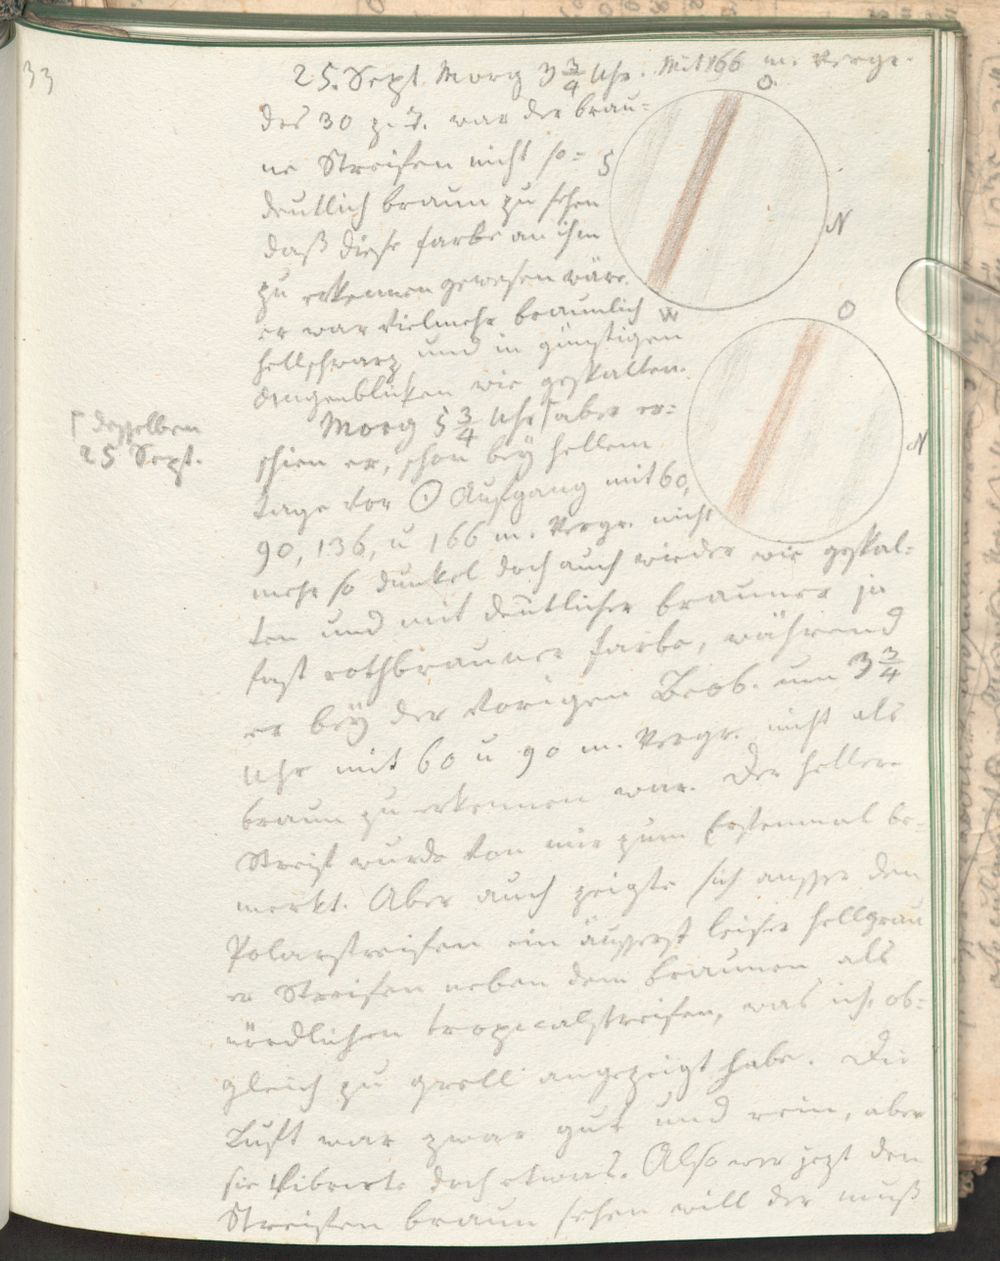 33
25. Sept. Morg 3 3/4 Uhr. Mit 166 m. Vergr.
des 30 z. T. war der brau=
ne Streifen nicht so=
deutlich braun zu sehen
daß diese farbe an ihm
zu erkennen gewesen wäre.
er war vielmehr bräunlich
hellschwarz und in günstigen
Augenblicken wie gespalten.
Morg 5 3/4 Uhr aber er=
schien er, schon beÿ hellem
Tage vor ☉ Aufgang mit 60,
90, 136, u 166 m. Vergr. nicht
mehr so dunkel doch auch wieder wie gespal=
ten und mit deutlicher brauner ja
fast rothbrauner farbe, während
er beÿ der vorigen Beob. um 3 3/4
Uhr mit 60 u 90 m. Vergr. nicht als
braun zu erkennen war. Der hellere
Streif wurde von mir zum Erstenmal be=
merkt. Aber auch zeigte sich ausser den
Polarstreifen ein äusserst leiser hellgrau
er Streifen neben dem braunen als
nördlichen tropicalstreifen, was ich ob=
gleich zu grell angezeigt habe. Die
Luft war zwar gut und rein, aber
sie vibrirte doch etwas. Also wer jezt den
Streifen braun sehen will der muß
desselben
25 Sept.
O
S
N
W
O
N